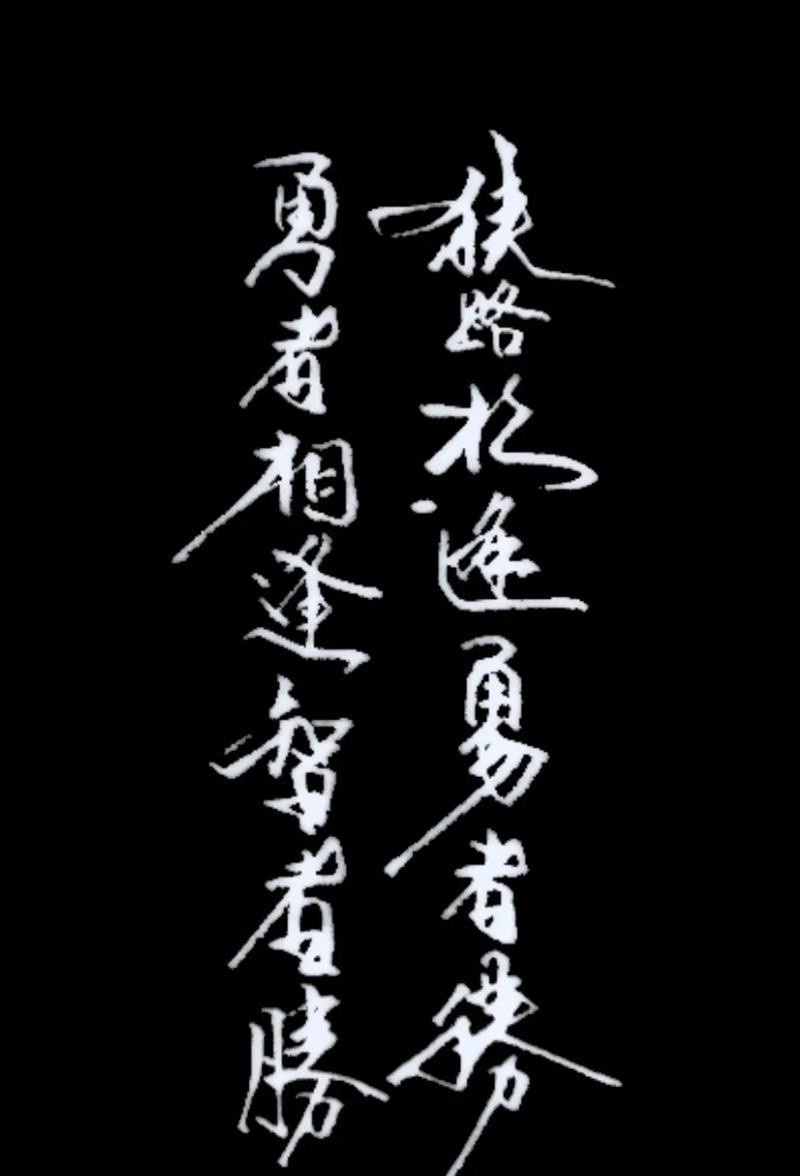 狭路相逢勇者勝
勇者相逢智者勝